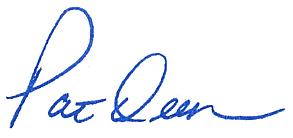 Pat Deen